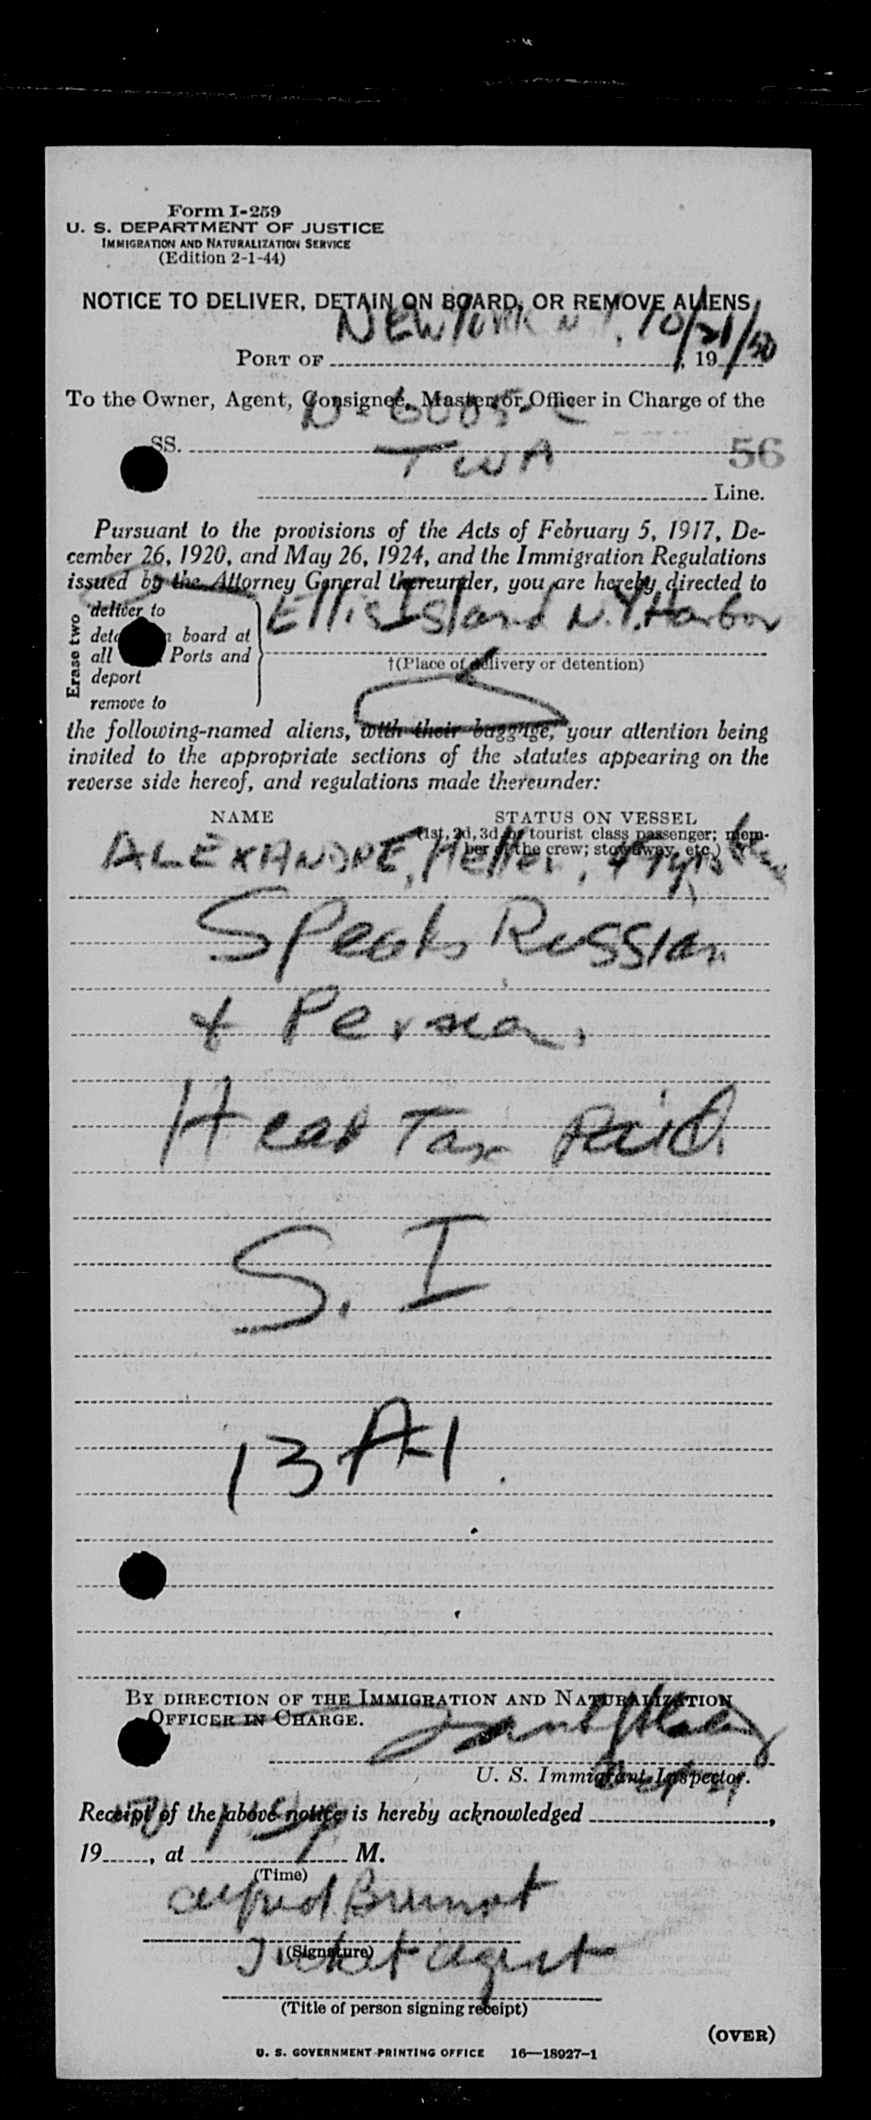 Form I-259
U. S. DEPARTMENT OF JUSTICE
IMMIGRATION AND NATURALIZATION SERVICE
(Edition 2-1-44)
NOTICE TO DELIVER, DETAIN ON BOARD, OR REMOVE ALIENS
New York N.Y. 10/21/50
PORT OF , 19
To the Owner, Agent, Consignee, Master or Officer in Charge of the
N-6005-C
SS.
TWA 56
Line.
Pursuant to the provisions of the Acts of February 5, 1917, De-
cember 26, 1920, and May 26, 1924, and the Immigration Regulations
issued by the Attorney General thereunder, you are hereby directed to
Erase two
deliver to
Ellis Island N.Y. Harbor
board at
all Ports and
†(Place of delivery or detention)
deport
remove to
the following-named aliens, with their baggage, your attention being
invited to the appropriate sections of the statutes appearing on the
reverse side hereof, and regulations made thereunder:
NAME STATUS ON VESSEL
(1st, 2d, 3d or tourist class passenger; mem-
ber of the crew; stowaway, etc.)
ALEXANDRE, Heller,
Speaks Russian
+ Persian.
Head Tax Paid.
S. I
13 A-1
BY DIRECTION OF THE IMMIGRATION AND NATURALIZATION
OFFICER IN CHARGE.
U. S. Immigrant Inspector.
Receipt of the above notice is hereby acknowledged ,
19 , at M.
(Time)
Alfred
(Signature)
Ticket Agent
(Title of person signing receipt)
(OVER)
U. S. GOVERNMENT PRINTING OFFICE 16—18927-1